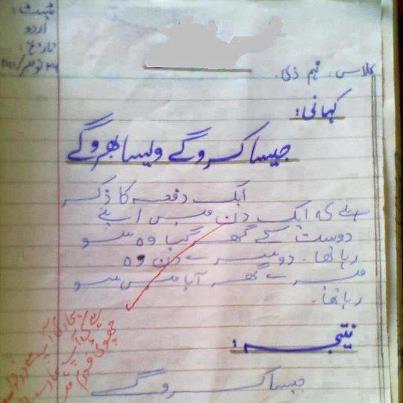 ٹیسٹ:
اردو
تاریخ:
کلاس: نہم ڈی.
کہانی:
جیسا کرو گے ویسا بھرو گے
ایک دفعہ کا ذکر
ہے کہ ایک دن میں اپنے
دوست کے گھر گیا وہ سو
رہا تھا. دوسرے دن وہ
میرے گھر آیا میں سو
رہا تھا.
نتیجہ:
جیسا کرو گے